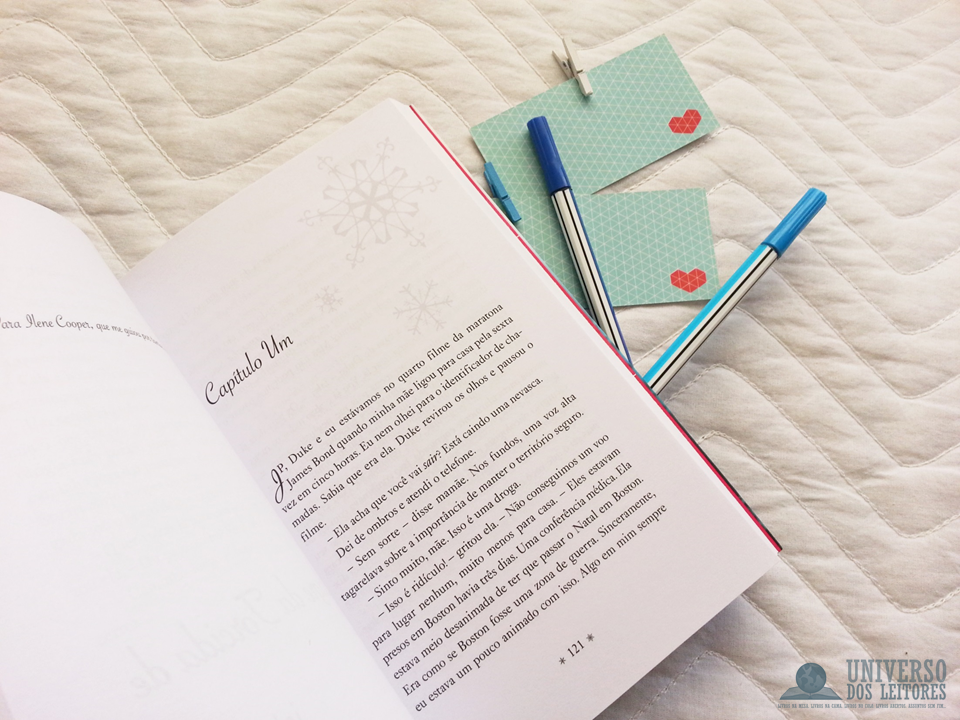 Para Ilene Cooper, que me guiou por
Capítulo Um
JP, Duke e eu estávamos no quarto filme da maratona
James Bond quando minha mãe ligou para casa pela sexta
vez em cinco horas. Eu nem olhei para o identificador de cha-
madas. Sabia que era ela. Duke revirou os olhos e pausou o
filme.
– Ela acha que você vai sair? Está caindo uma nevasca.
Dei de ombros e atendi o telefone.
– Sem sorte – disse mamãe. Nos fundos, uma voz alta
tagarelava sobre a importância de manter o território seguro.
– Sinto muito, mãe. Isso é uma droga.
– Isso é ridículo! – gritou ela. – Não conseguimos um voo
para lugar nenhum, muito menos para casa. – Eles estavam
presos em Boston havia três dias. Uma conferência médica. Ela
estava meio desanimada de ter que passar o Natal em Boston.
Era como se Boston fosse uma zona de guerra. Sinceramente,
eu estava um pouco animado com isso. Algo em mim sempre
* 121 *
UNIVERSO
DOS LEITORES